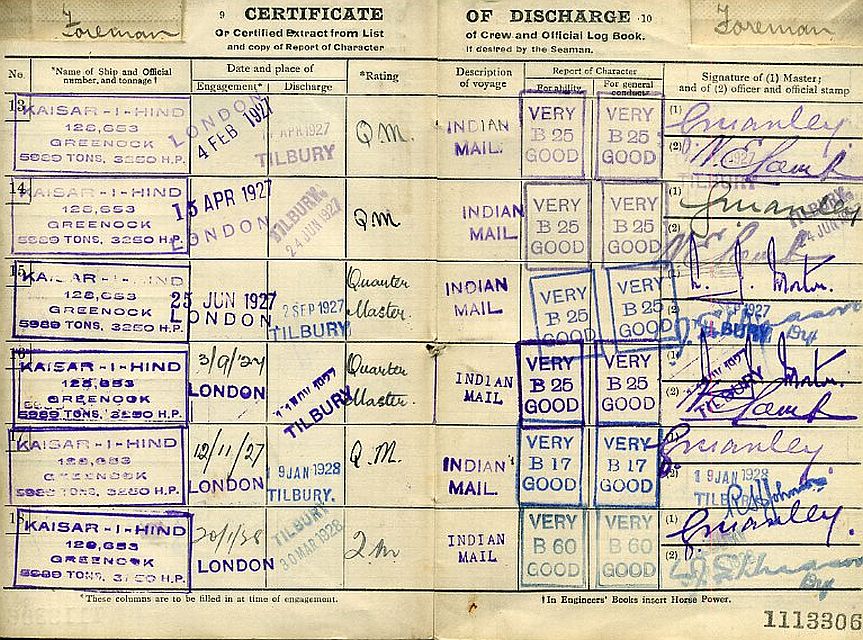 Foreman
9 CERTIFICATE
Or Certified Extract from List
and copy of Report of Character
OF DISCHARGE 10
of Crew and Official Log Book.
if desired by the Seaman.
Foreman
No.
*Name of Ship and Official number, and tonnage†
Date and place of
Engagement*
Discharge
*Rating
Description of voyage
Report of Character
For ability
For general conduct
Signature of (1) Master; and of (2) officer and official stamp
13
KAISAR-I-HIND
128,653
GREENOCK
5989 TONS, 3250 H.P.
LONDON
4 FEB 1927
APR 1927
TILBURY
Q.M.
INDIAN
MAIL.
VERY
B 25
GOOD
VERY
B 25
GOOD
(1)
(2)
14
KAISAR-I-HIND
128,653
GREENOCK
5989 TONS, 3250 H.P.
15 APR 1927
LONDON
TILBURY
24 JUN 1927
QM
INDIAN
MAIL.
VERY
B 25
GOOD
VERY
B 25
GOOD
(1)
(2)
15
KAISAR-I-HIND
128,653
GREENOCK
5989 TONS, 3250 H.P.
25 JUN 1927
LONDON
2 SEP 1927
TILBURY
Quarter
Master.
INDIAN
MAIL.
VERY
B 25
GOOD
VERY
B 25
GOOD
TILBURY
KAISAR-I-HIND
128,653
GREENOCK
5989 TONS, 3250 H.P.
3/9/27
LONDON
TILBURY
Quarter
Master.
INDIAN
MAIL
VERY
B 25
GOOD
VERY
B 25
GOOD
(2)
TILBURY
KAISAR-I-HIND
128,653
GREENOCK
5989 TONS, 3250 H.P.
12/11/27
LONDON
9 JAN 1928
TILBURY.
Q.M.
INDIAN
MAIL.
VERY
B 17
GOOD
VERY
B 17
GOOD
19 JAN 1928
KAISAR-I-HIND
128,653
GREENOCK
5989 TONS, 3250 H.P.
20/1/28
LONDON
TILBURY
30 MAR 1928
Q.M
INDIAN
MAIL
VERY
B 60
GOOD
VERY
B 60
GOOD
(1)
(2)
*These columns are to be filled in at time of engagement.
†In Engineers' Books insert Horse Power.
1113306